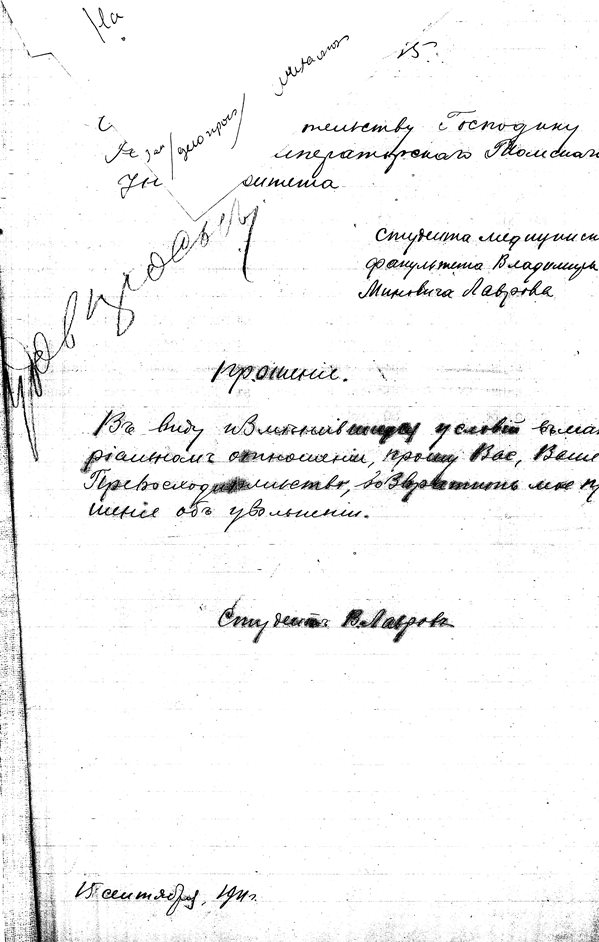 На
15
тельству Господину
мператорскаго Томскаго
Ун рситета
студента медицинск
факультета Владимира
Миновича Лаврова
Прошеніе.
Въ виду измѣнившихся условій въ мат
ріальномъ отношеніи, прошу Вас, Ваше
Превосходительство, возвратить мне пр
шеніе объ увольненіи.
Студентъ В. Лавровъ
15 сентября, 1911 г.